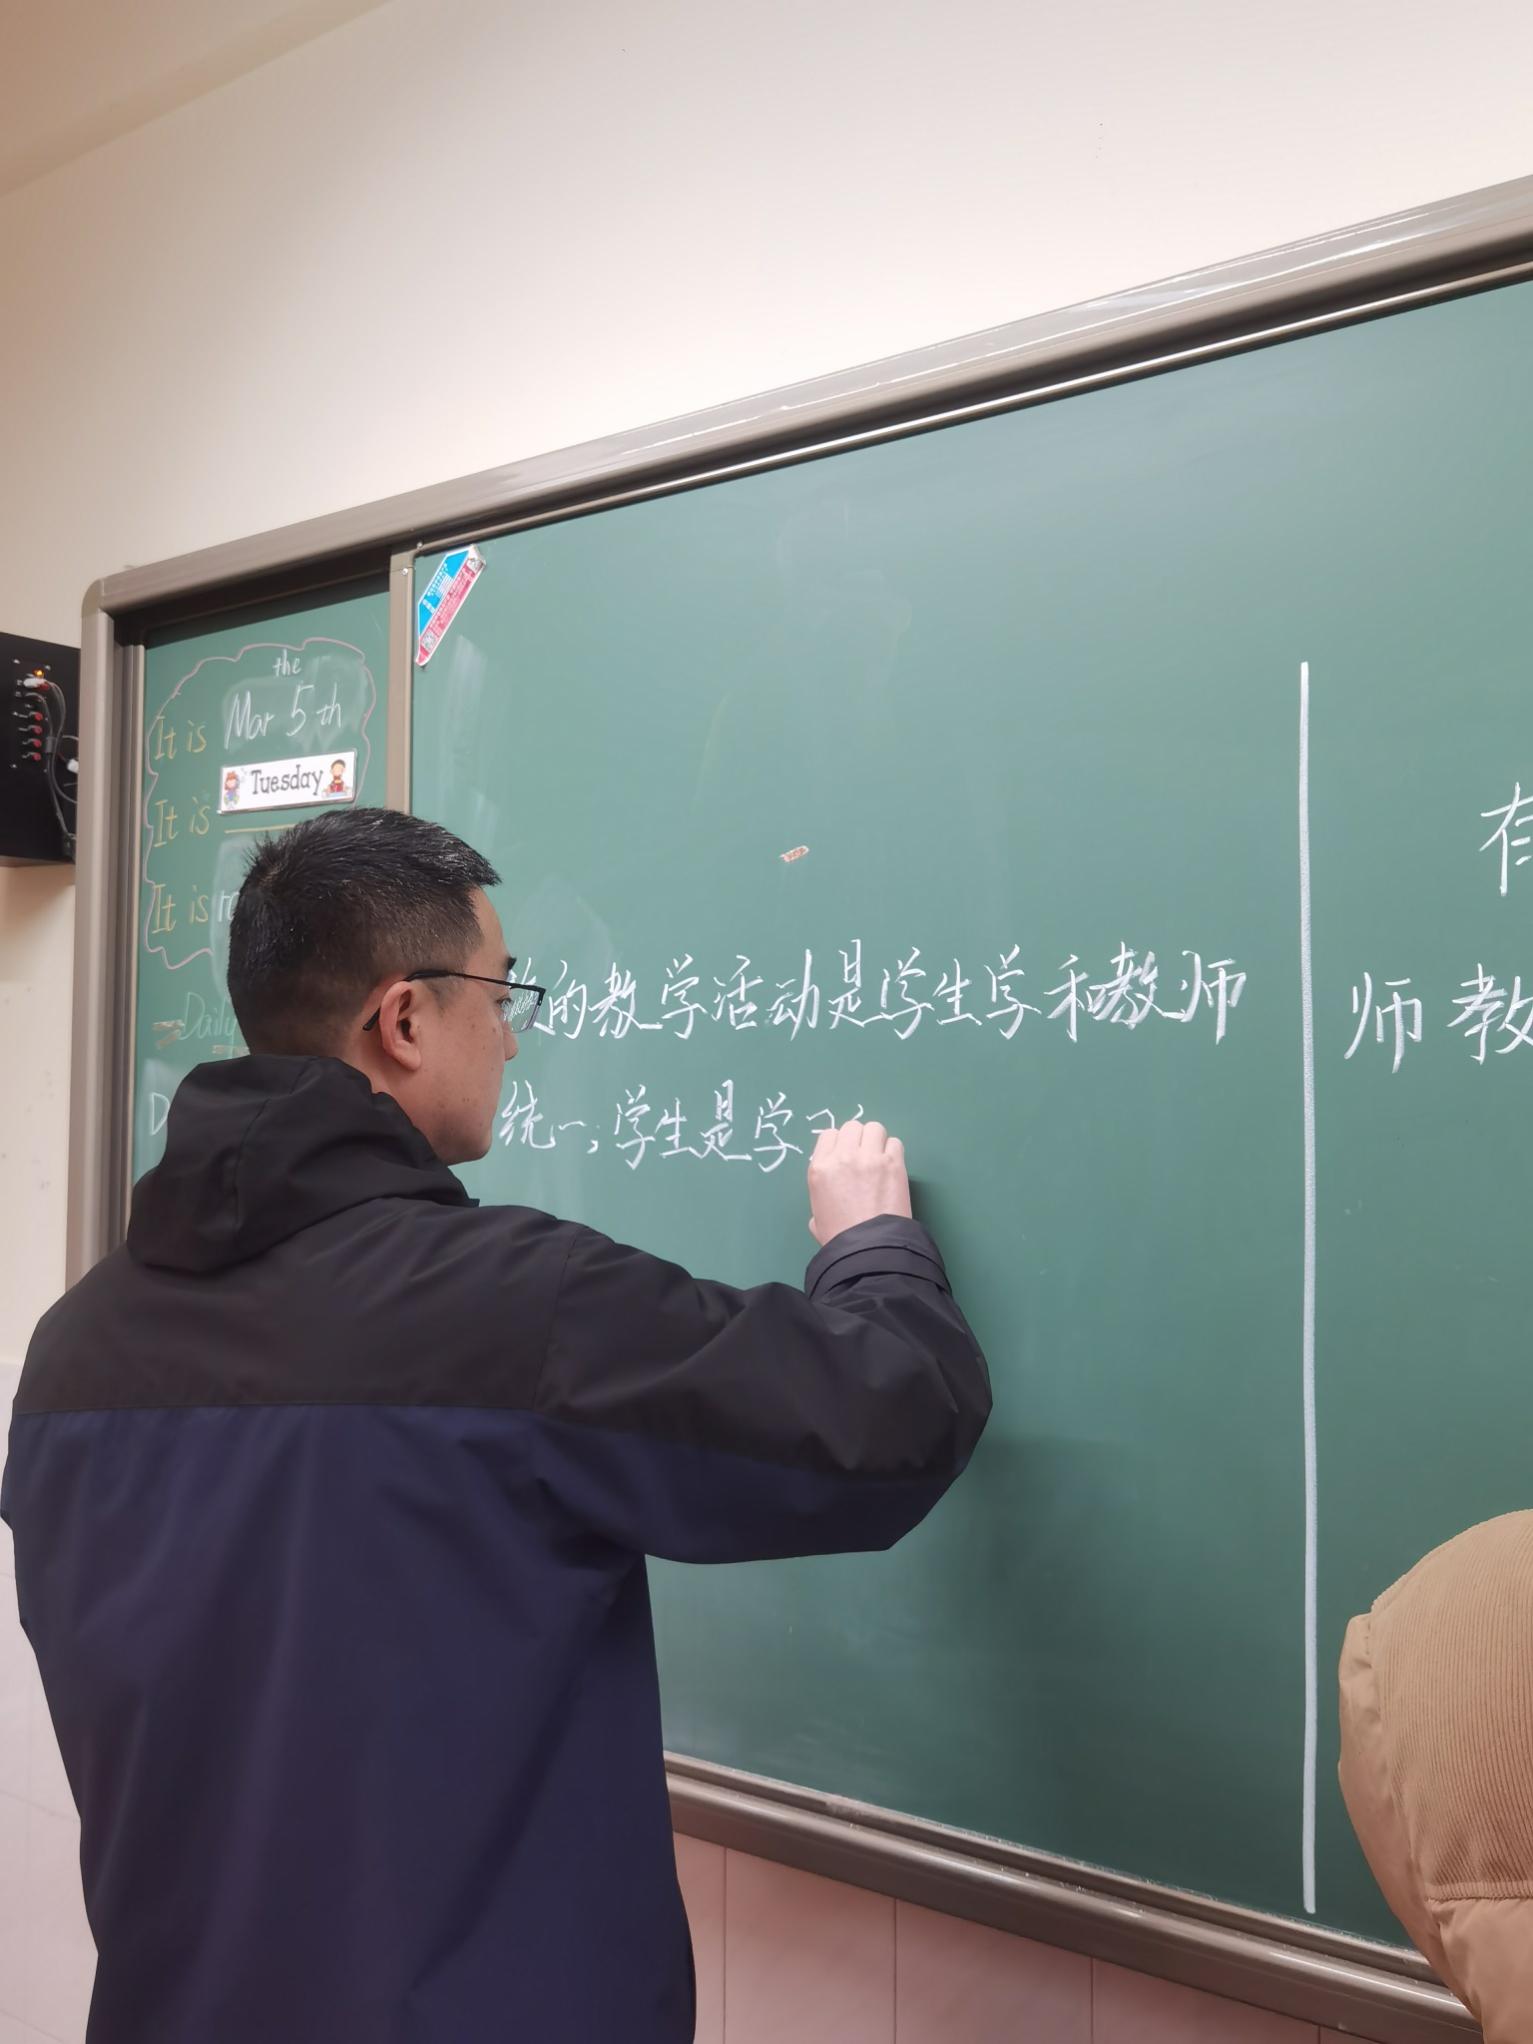 the
It is Mar 5th
Tuesday
It is
It is
Daily
的教学活动是学生学和教师
统一；学生是学习
师教